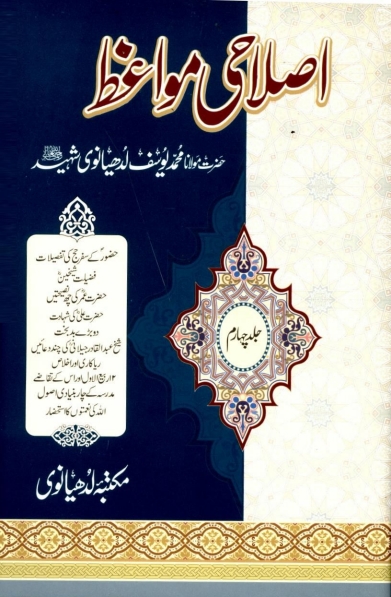 اصلاحی مواعظ
حضرت مولانا محمد یوسف لدھیانوی شہید
حضورؐ کے سفر حج کی تفصیلات
فضیلت شیخینؓ
حضرت عمرؓ کی چھ نصیحتیں
حضرت علیؓ کی شہادت
دو بڑے بدبخت
شیخ عبدالقادر جیلانیؒ کی چند دعائیں
ریاکاری اور اخلاص
۱۲ ربیع الاول اور اس کے تقاضے
مدرسہ کے چار بنیادی اصول
اللہ کی نعمتوں کا استحضار
جلد چہارم
مکتبۂ لدھیانوی